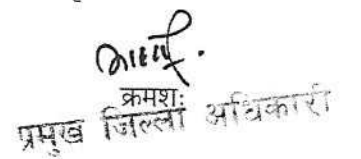 क्रमशः
प्रमुख जिल्ला अधिकारी